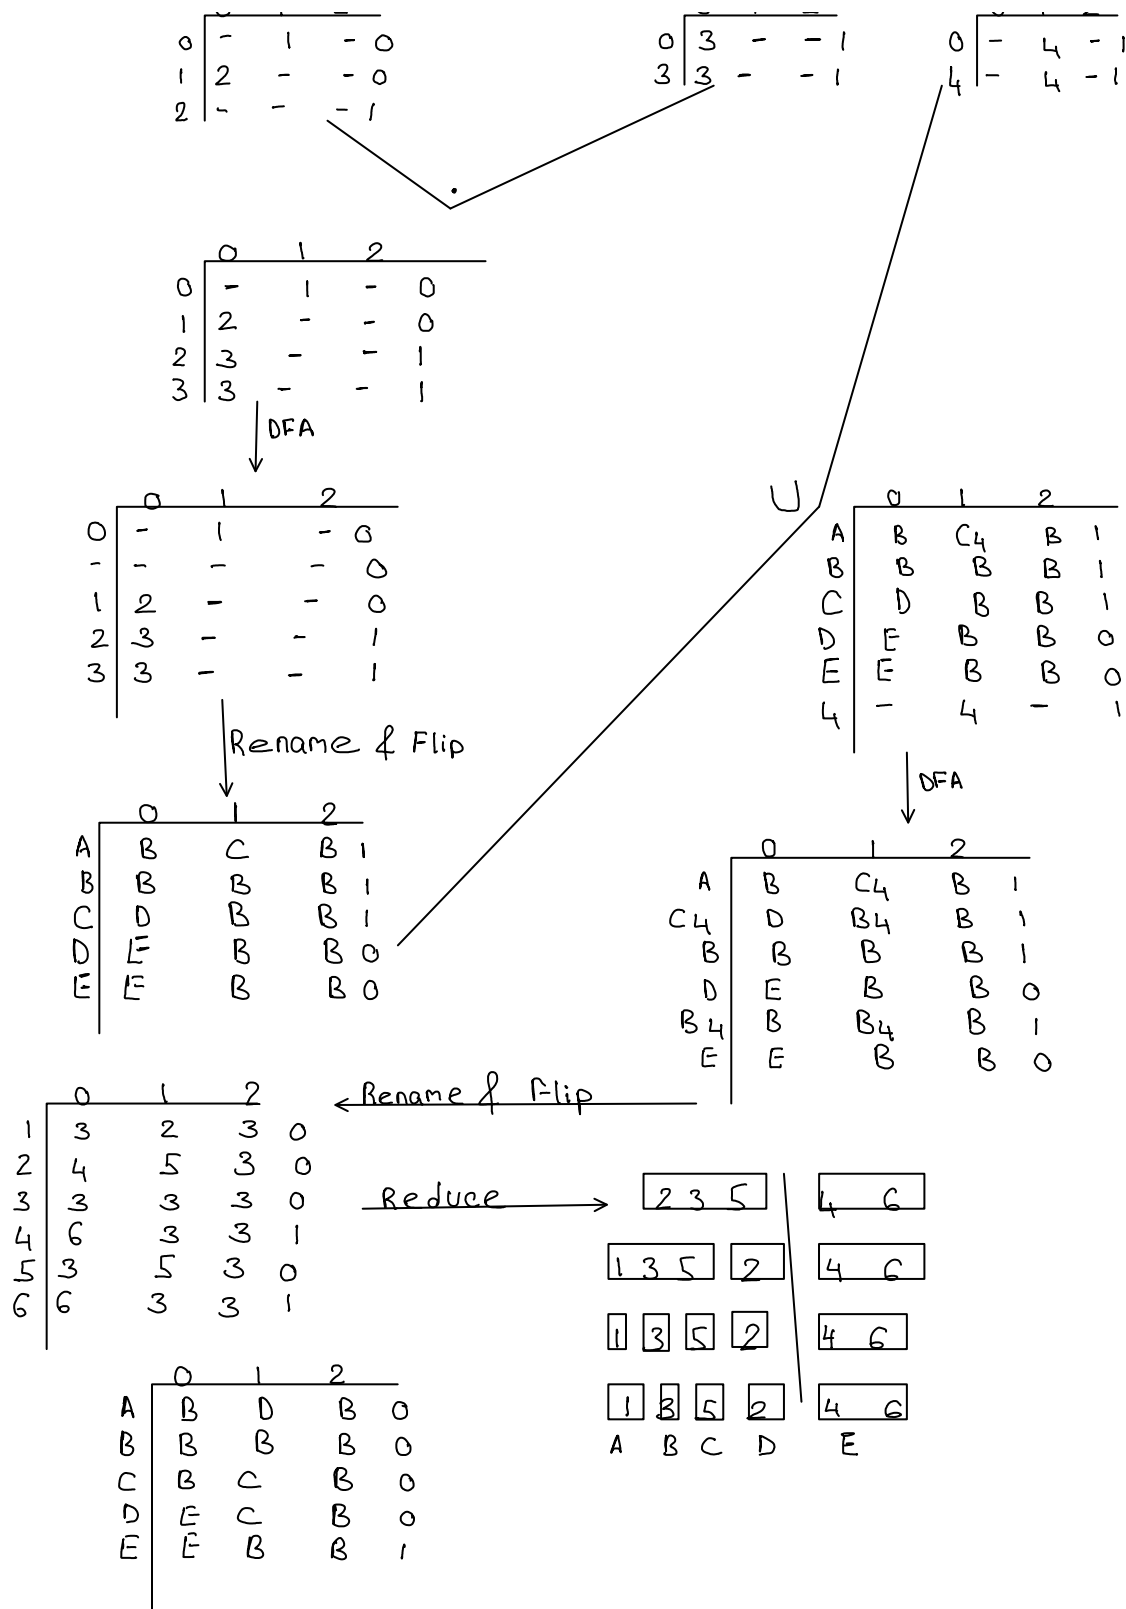 0 1 2
0 - 1 - 0
1 2 - - 0
2 - - - 1
0 1 2
0 3 - - 1
3 3 - - 1
0 1 2
0 - 4 - 1
4 - 4 - 1
.
0 1 2
0 - 1 - 0
1 2 - - 0
2 3 - - 1
3 3 - - 1
DFA
0 1 2
0 - 1 - 0
- - - - 0
1 2 - - 0
2 3 - - 1
3 3 - - 1
Rename & Flip
0 1 2
A B C B 1
B B B B 1
C D B B 1
D E B B 0
E E B B 0
U
0 1 2
A B C4 B 1
B B B B 1
C D B B 1
D E B B 0
E E B B 0
4 - 4 - 1
DFA
0 1 2
A B C4 B 1
C4 D B4 B 1
B B B B 1
D E B B 0
B4 B B4 B 1
E E B B 0
Rename & Flip
0 1 2
1 3 2 3 0
2 4 5 3 0
3 3 3 3 0
4 6 3 3 1
5 3 5 3 0
6 6 3 3 1
Reduce
2 3 5 4 6
1 3 5 2 4 6
1 3 5 2 4 6
1 3 5 2 4 6
A B C D E
0 1 2
A B D B 0
B B B B 0
C B C B 0
D E C B 0
E E B B 1